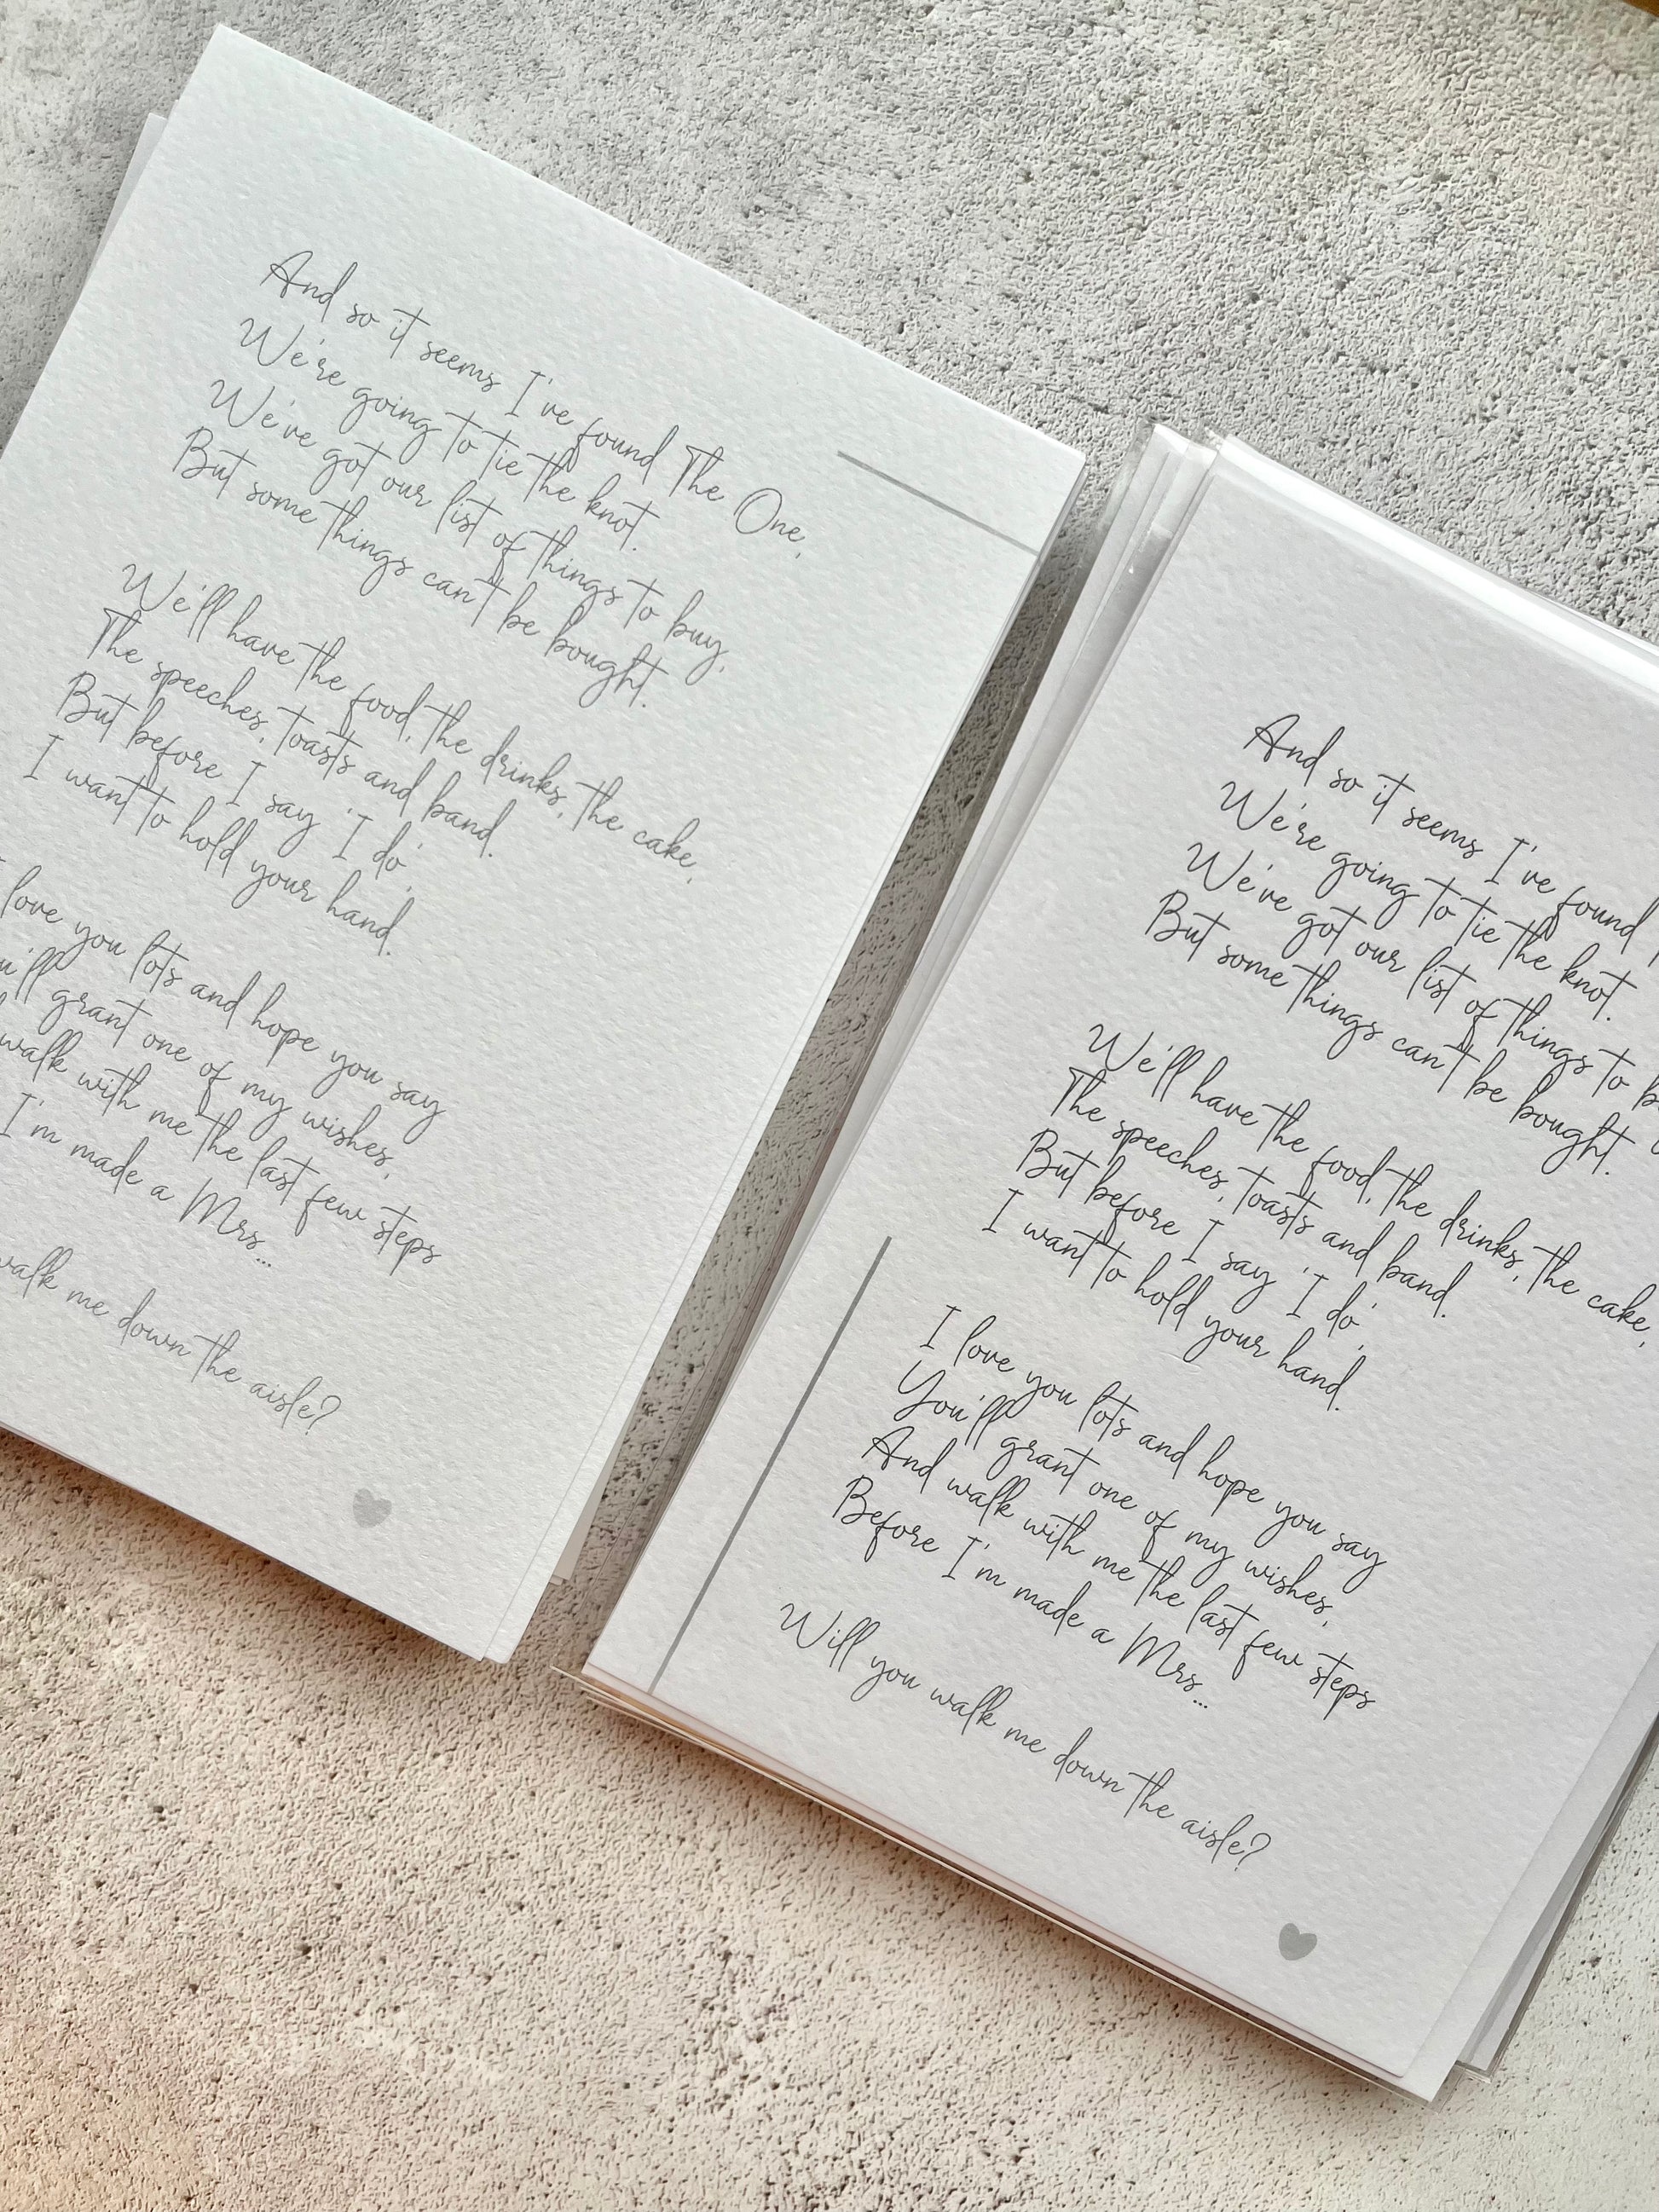 And so it seems I've found The One,
We're going to tie the knot.
We've got our list of things to buy,
But some things can't be bought.
We'll have the food, the drinks, the cake,
The speeches, toasts and band.
But before I say 'I do',
I want to hold your hand.
love you lots and hope you say
grant one of my wishes,
walk with me the last few steps
I'm made a Mrs...
walk me down the aisle?
And so it seems I've found
We're going to tie the knot.
We've got our list of things to
But some things can't be bought.
We'll have the food, the drinks, the cake,
The speeches, toasts and band.
But before I say 'I do',
I want to hold your hand.
I love you lots and hope you say
You'll grant one of my wishes,
And walk with me the last few steps
Before I'm made a Mrs...
Will you walk me down the aisle?